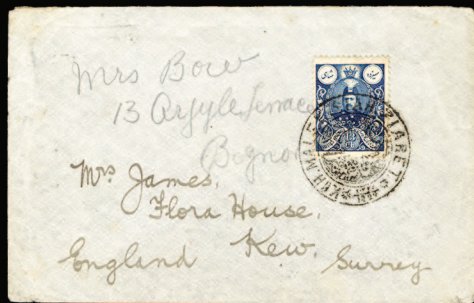 Mrs Bow
13 Argyle Terrace
Bognor
Mrs James,
Flora House,
Kew.
England Surrey